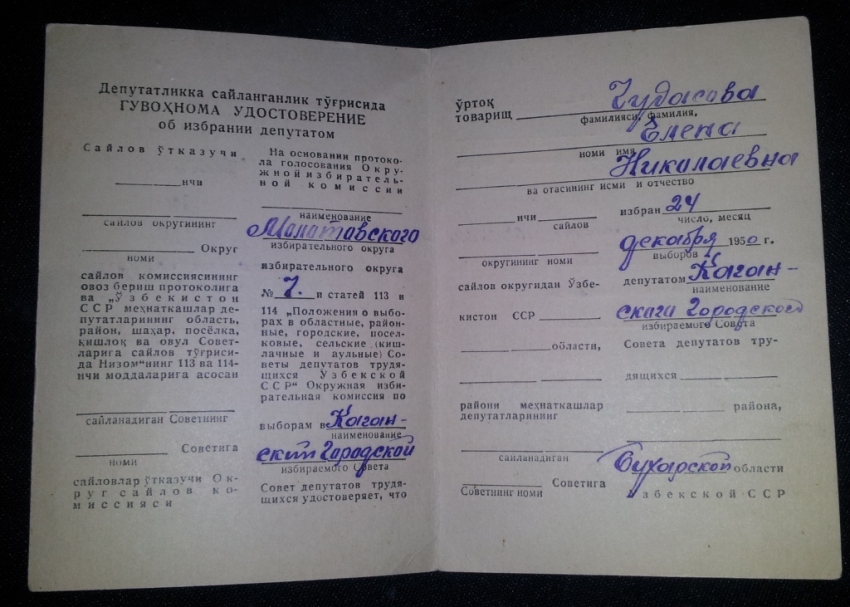 Депутатликка сайланганлик тўғрисида
ГУВОҲНОМА УДОСТОВЕРЕНИЕ
об избрании депутатом
Сайлов ўтказучи
нчи
сайлов округининг
Округ
номи
сайлов комиссиясининг
овоз бериш протоколига
ва „Ўзбекистон
ССР меҳнаткашлар де-
путатларининг область,
район, шаҳар, посёлка,
қишлоқ ва овул Совет-
ларига сайлов тўғриси-
да Низом"нинг 113 ва 114-
нчи моддаларига асосан
сайланадиган Советнинг
Советига
номи
сайловлар ўтказучи Ок-
руг сайлов ко-
миссияси
На основании протоко-
ла голосования Окру-
жной избиратель-
ной комиссии
наименование
Молотовского
избирательного округа
избирательного округа
№ 7. и статей 113 и
114 „Положения о выбо-
рах в областные, район-
ные, городские, посел-
ковые, сельские (киш-
лачные и аульные) Со-
веты депутатов трудя-
щихся Узбекской
ССР" Окружная изби-
рательная комиссия по
выборам в Каган-
наименование
ский Городской
избираемого Совета
Совет депутатов трудя-
щихся удостоверяет, что
ўртоқ
товарищ Чудасова
фамилияси, фамилия,
Елена
номи имя
Николаевна
ва отасининг исми и отчество
нчи
сайлов
округининг номи
сайлов округидан Ўзбе-
кистон ССР
области,
райони меҳнаткашлар
депутатларининг
сайланадиган
Советига
Советнинг номи
избран 24
число, месяц
декабря 1950 г.
выборов
депутатом Каган-
наименование
скаго Городского
избираемого Совета
Совета депутатов тру-
дящихся
района,
Бухарской области
Узбекской ССР